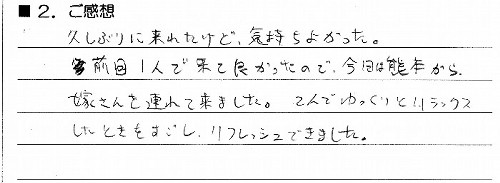 ■2. ご感想
久しぶりに来れたけど、気持ちよかった。
前回1人で来て良かったので、今回は熊本から
嫁さんを連れて来ました。 2人でゆっくりとリラックス
したときをすごし、リフレッシュできました。